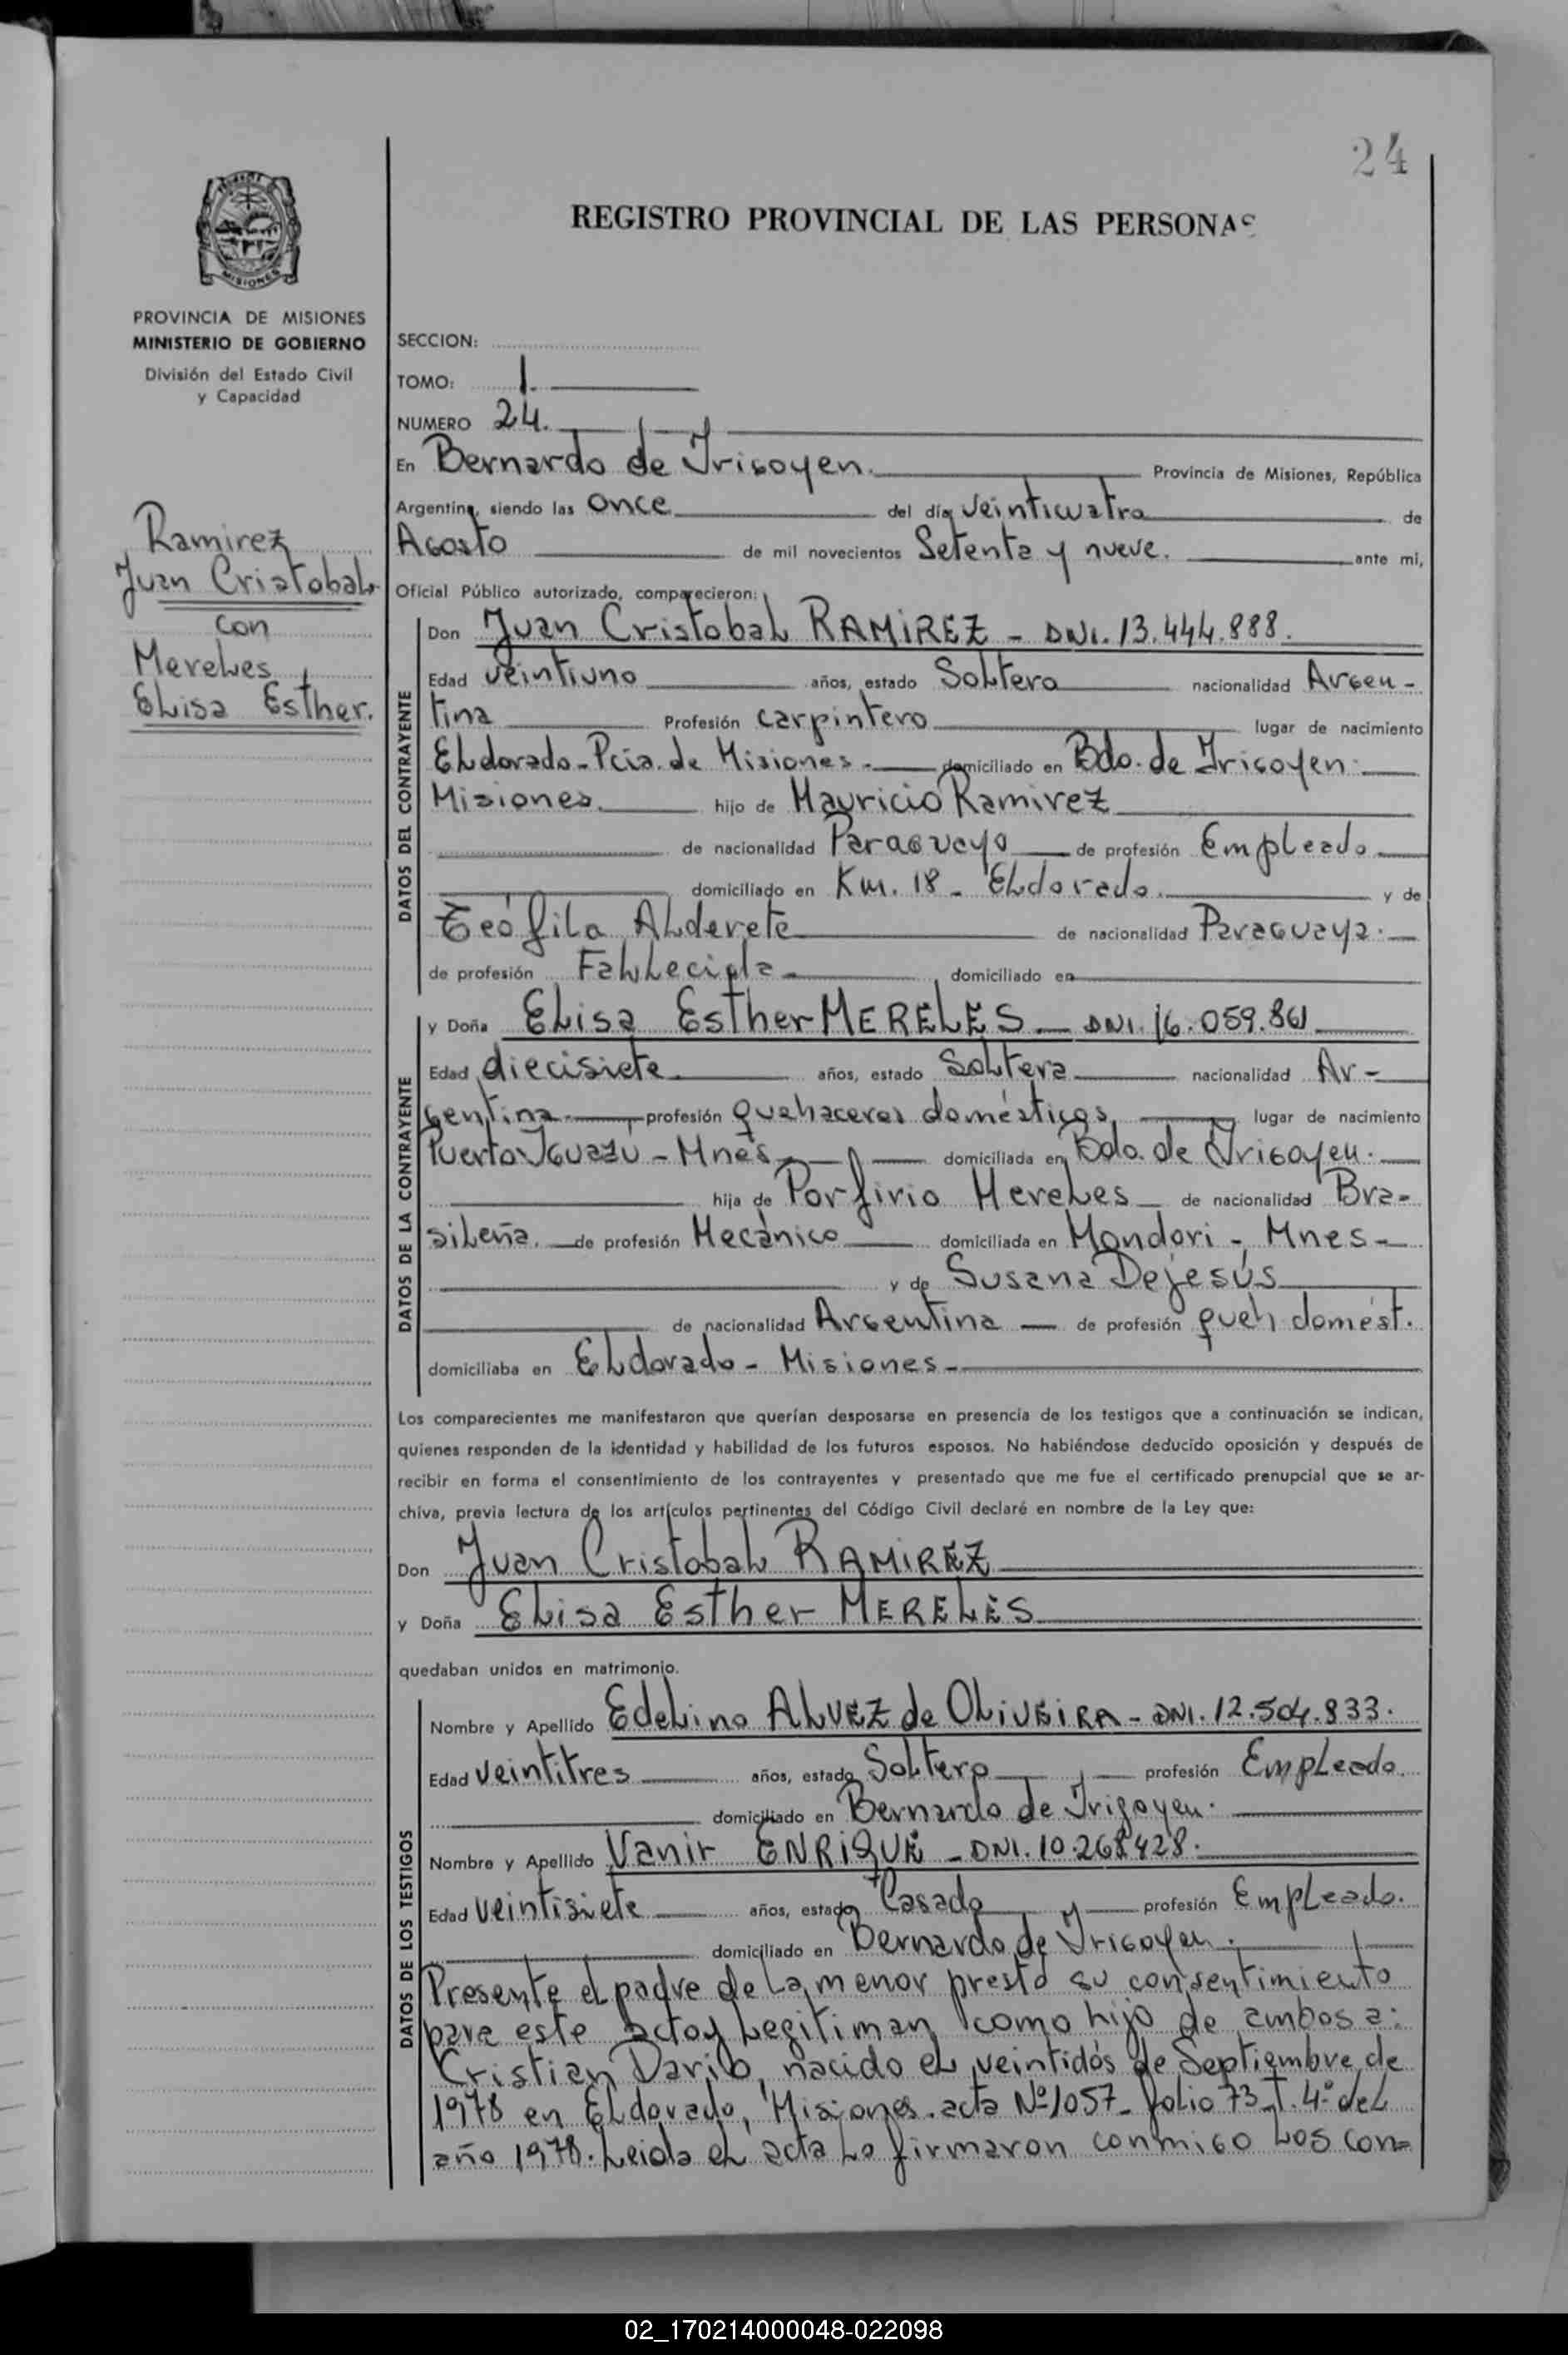 24
REGISTRO PROVINCIAL DE LAS PERSONAS
MISIONES
PROVINCIA DE MISIONES
MINISTERIO DE GOBIERNO
División del Estado Civil
y Capacidad
Ramirez
Juan Cristobal
con
Mereles
Elisa Esther.
SECCION:
TOMO: 1.
NUMERO 24.
En Bernardo de Irigoyen. Provincia de Misiones, República
Argentina, siendo las Once del día veinticuatro de
Agosto de mil novecientos Setenta y nueve. ante mi,
Oficial Público autorizado, comparecieron:
DATOS DEL CONTRAYENTE
Don Juan Cristobal RAMIREZ - DNI. 13.444.888.
Edad veintiuno años, estado Soltero nacionalidad Argen-
tina Profesión carpintero lugar de nacimiento
Eldorado - Pcia. de Misiones - domiciliado en Bdo. de Irigoyen.
Misiones. hijo de Mauricio Ramirez
de nacionalidad Paraguayo de profesión Empleado
domiciliado en Km. 18 - Eldorado. y de
Teófila Alderete de nacionalidad Paraguaya.
de profesión Fallecida - domiciliado en
DATOS DE LA CONTRAYENTE
y Doña Elisa Esther MERELES - DNI. 16.059.861
Edad diecisiete años, estado Soltera nacionalidad Ar-
gentina profesión quehaceres domésticos lugar de nacimiento
Puerto Iguazú - Mnes - domiciliada en Bdo. de Irigoyen.
hija de Porfirio Mereles de nacionalidad Bra-
sileña. de profesión Mecánico domiciliada en Mondori - Mnes -
y de Susana Dejesús
de nacionalidad Argentina de profesión queh domést.
domiciliaba en Eldorado - Misiones -
Los comparecientes me manifestaron que querían desposarse en presencia de los testigos que a continuación se indican,
quienes responden de la identidad y habilidad de los futuros esposos. No habiéndose deducido oposición y después de
recibir en forma el consentimiento de los contrayentes y presentado que me fue el certificado prenupcial que se ar-
chiva, previa lectura de los artículos pertinentes del Código Civil declaré en nombre de la Ley que:
Don Juan Cristobal RAMIREZ
y Doña Elisa Esther MERELES
quedaban unidos en matrimonio.
DATOS DE LOS TESTIGOS
Nombre y Apellido Edelino ALVEZ de OLIVEIRA - DNI. 12.504.833.
Edad veintitres años, estado Soltero profesión Empleado.
domiciliado en Bernardo de Irigoyen.
Nombre y Apellido Vanir ENRIQUE - DNI. 10.268.428.
Edad veintisiete años, estado Casado profesión Empleado.
domiciliado en Bernardo de Irigoyen.
Presente el padre de la menor prestó su consentimiento
para este acto y legitiman como hijo de ambos a:
Cristian Dario, nacido el veintidós de Septiembre de
1978 en Eldorado, Misiones. acta Nº 1057 - folio 73 - T. 4º del
año 1978. Leida el acta la firmaron conmigo los con=
02_170214000048-022098